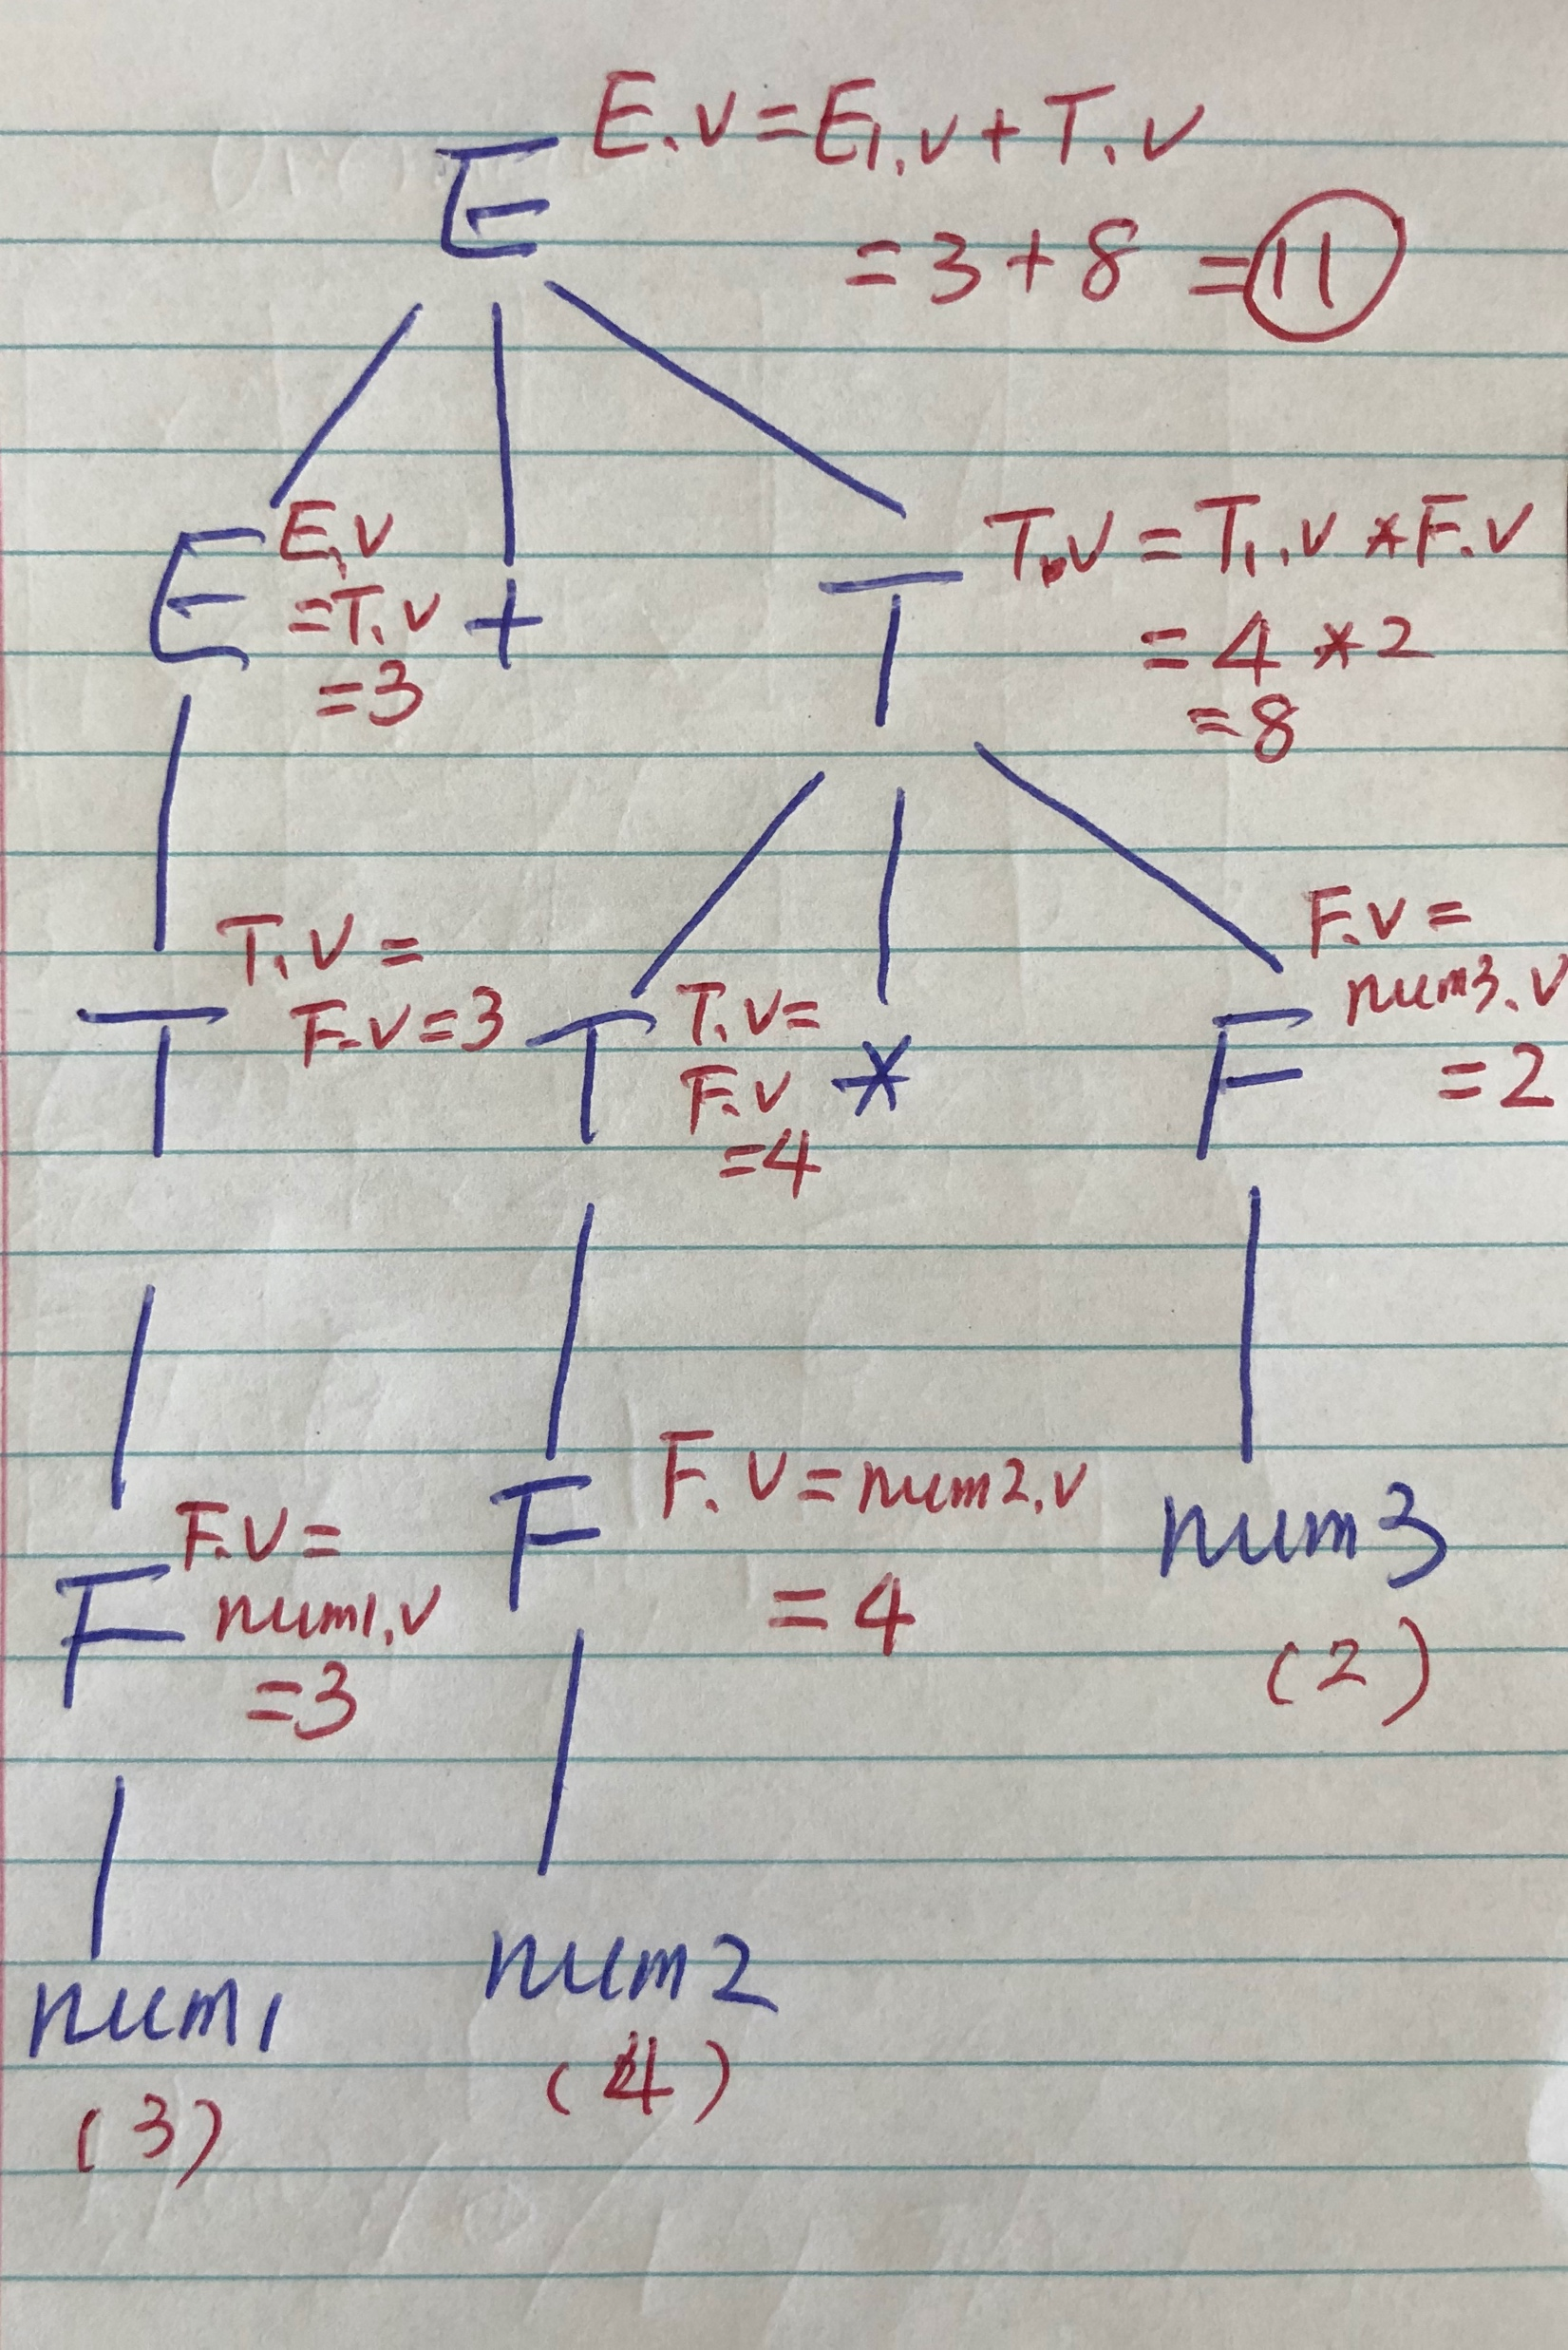 E.v = E1.v + T.v
E
= 3 + 8 = 11
E
E.v
= T.v
= 3
+
T
T.v = T1.v * F.v
= 4 * 2
= 8
T
T.v =
F.v = 3
T
T.v =
F.v
= 4
*
F
F.v =
num3.v
= 2
F
F.v =
num1.v
= 3
F
F.v = num2.v
= 4
num3
(2)
num1
(3)
num2
(4)